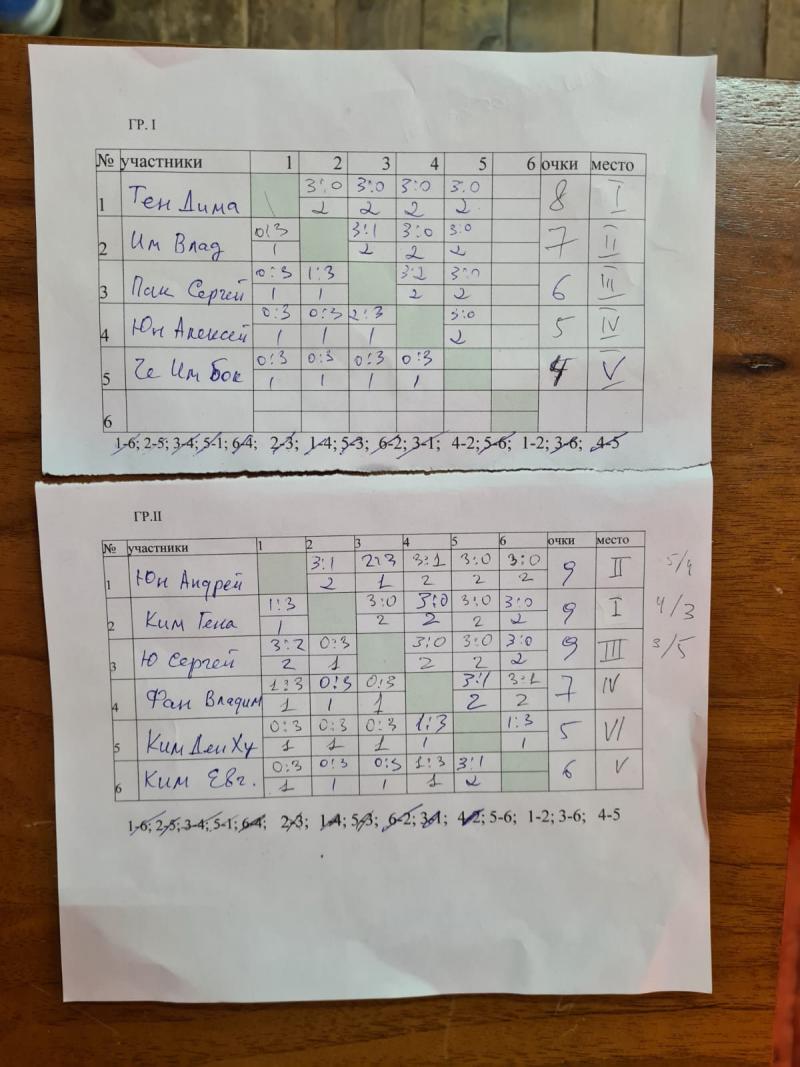 ГР. I
№ участники 1 2 3 4 5 6 очки место
1 Тен Дима 3:0 3:0 3:0 3:0 8 I
2 2 2 2
2 Им Влад 0:3 3:1 3:0 3:0 7 II
1 2 2 2
3 Пак Сергей 0:3 1:3 3:2 3:0 6 III
1 1 2 2
4 Юн Алексей 0:3 0:3 2:3 3:0 5 IV
1 1 1 2
5 Че Им Бок 0:3 0:3 0:3 0:3 4 V
1 1 1 1
6
1-6; 2-5; 3-4; 5-1; 6-4; 2-3; 1-4; 5-3; 6-2; 3-1; 4-2; 5-6; 1-2; 3-6; 4-5
ГР.II
№ участники 1 2 3 4 5 6 очки место
1 Юн Андрей 3:1 2:3 3:1 3:0 3:0 9 II 5/4
2 1 2 2 2
2 Ким Гена 1:3 3:0 3:0 3:0 3:0 9 I 4/3
1 2 2 2 2
3 Ю Сергей 3:2 0:3 3:0 3:0 3:0 9 III 3/5
2 1 2 2 2
4 Фан Владим 1:3 0:3 0:3 3:1 3:1 7 IV
1 1 1 2 2
5 Ким Ден Ху 0:3 0:3 0:3 1:3 1:3 5 VI
1 1 1 1 1
6 Ким Евг. 0:3 0:3 0:3 1:3 3:1 6 V
1 1 1 1 2
1-6; 2-5; 3-4; 5-1; 6-4; 2-3; 1-4; 5-3; 6-2; 3-1; 4-2; 5-6; 1-2; 3-6; 4-5